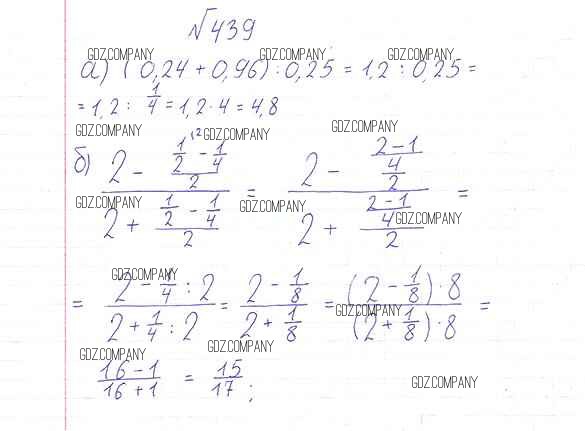 №439
GDZ.COMPANY GDZ.COMPANY GDZ.COMPANY
а) (0,24 + 0,96) : 0,25 = 1,2 : 0,25 =
= 1,2 : 1/4 = 1,2 · 4 = 4,8
GDZ.COMPANY GDZ.COMPANY GDZ.COMPANY
б) (2 - (1/2 - 1/4)/2)/(2 + (1/2 - 1/4)/2) = (2 - ((2-1)/4)/2)/(2 + ((2-1)/4)/2) =
GDZ.COMPANY GDZ.COMPANY GDZ.COMPANY
GDZ.COMPANY
= (2 - 1/4 : 2)/(2 + 1/4 : 2) = (2 - 1/8)/(2 + 1/8) = ((2 - 1/8) · 8)/((2 + 1/8) · 8) =
GDZ.COMPANY
GDZ.COMPANY GDZ.COMPANY
(16-1)/(16+1) = 15/17;
GDZ.COMPANY